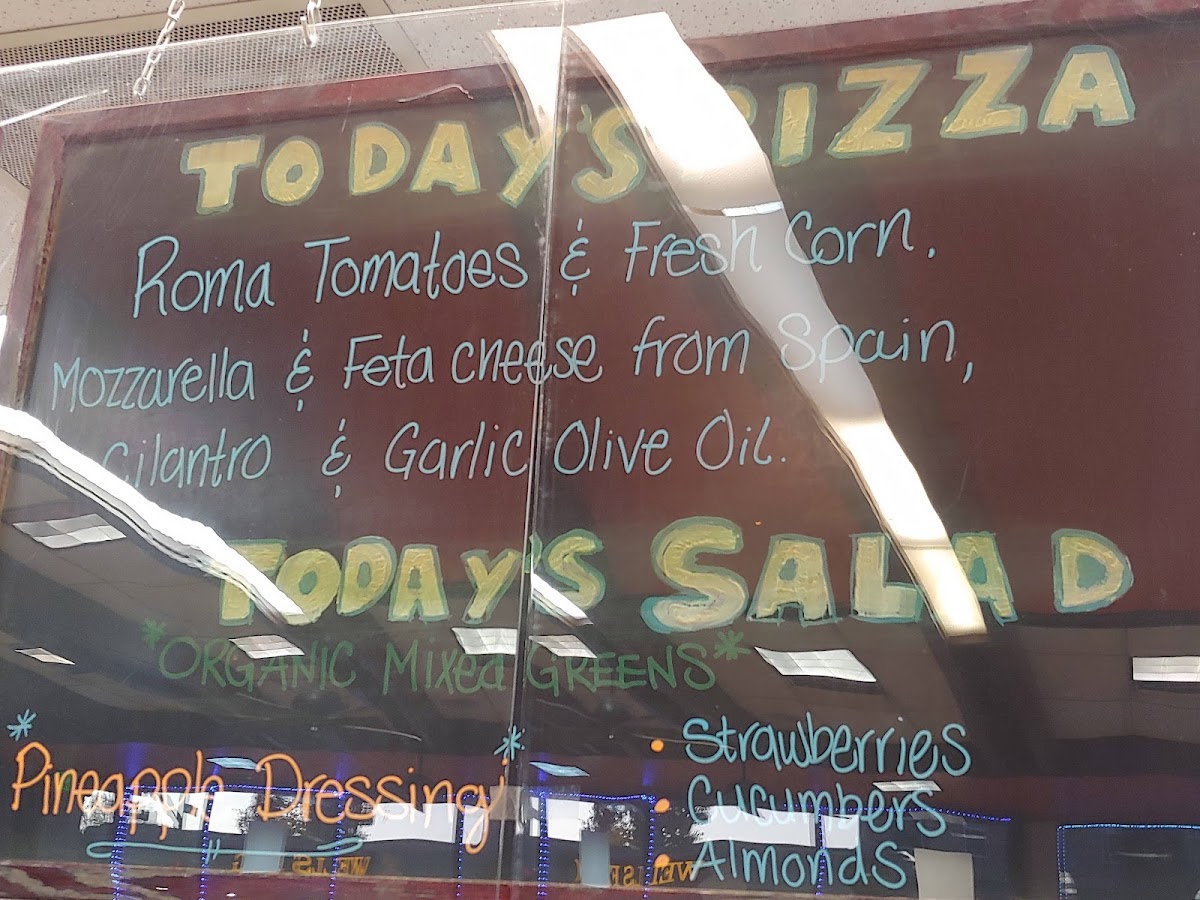 TODAY'S PIZZA
Roma Tomatoes & Fresh Corn.
Mozzarella & Feta cheese from Spain,
Cilantro & Garlic Olive Oil.
TODAY'S SALAD
*ORGANIC Mixed GREENS*
*Pineapple Dressing*
• Strawberries
• Cucumbers
• Almonds